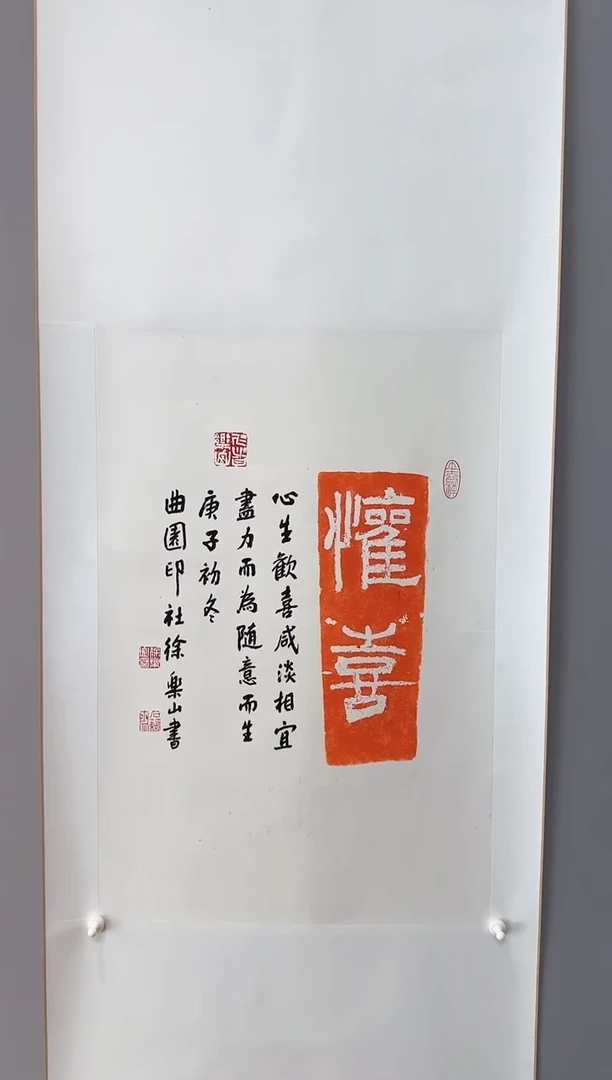 懽喜
心生歡喜咸淡相宜
盡力而為隨意而生
庚子初冬
曲園印社徐樂山書